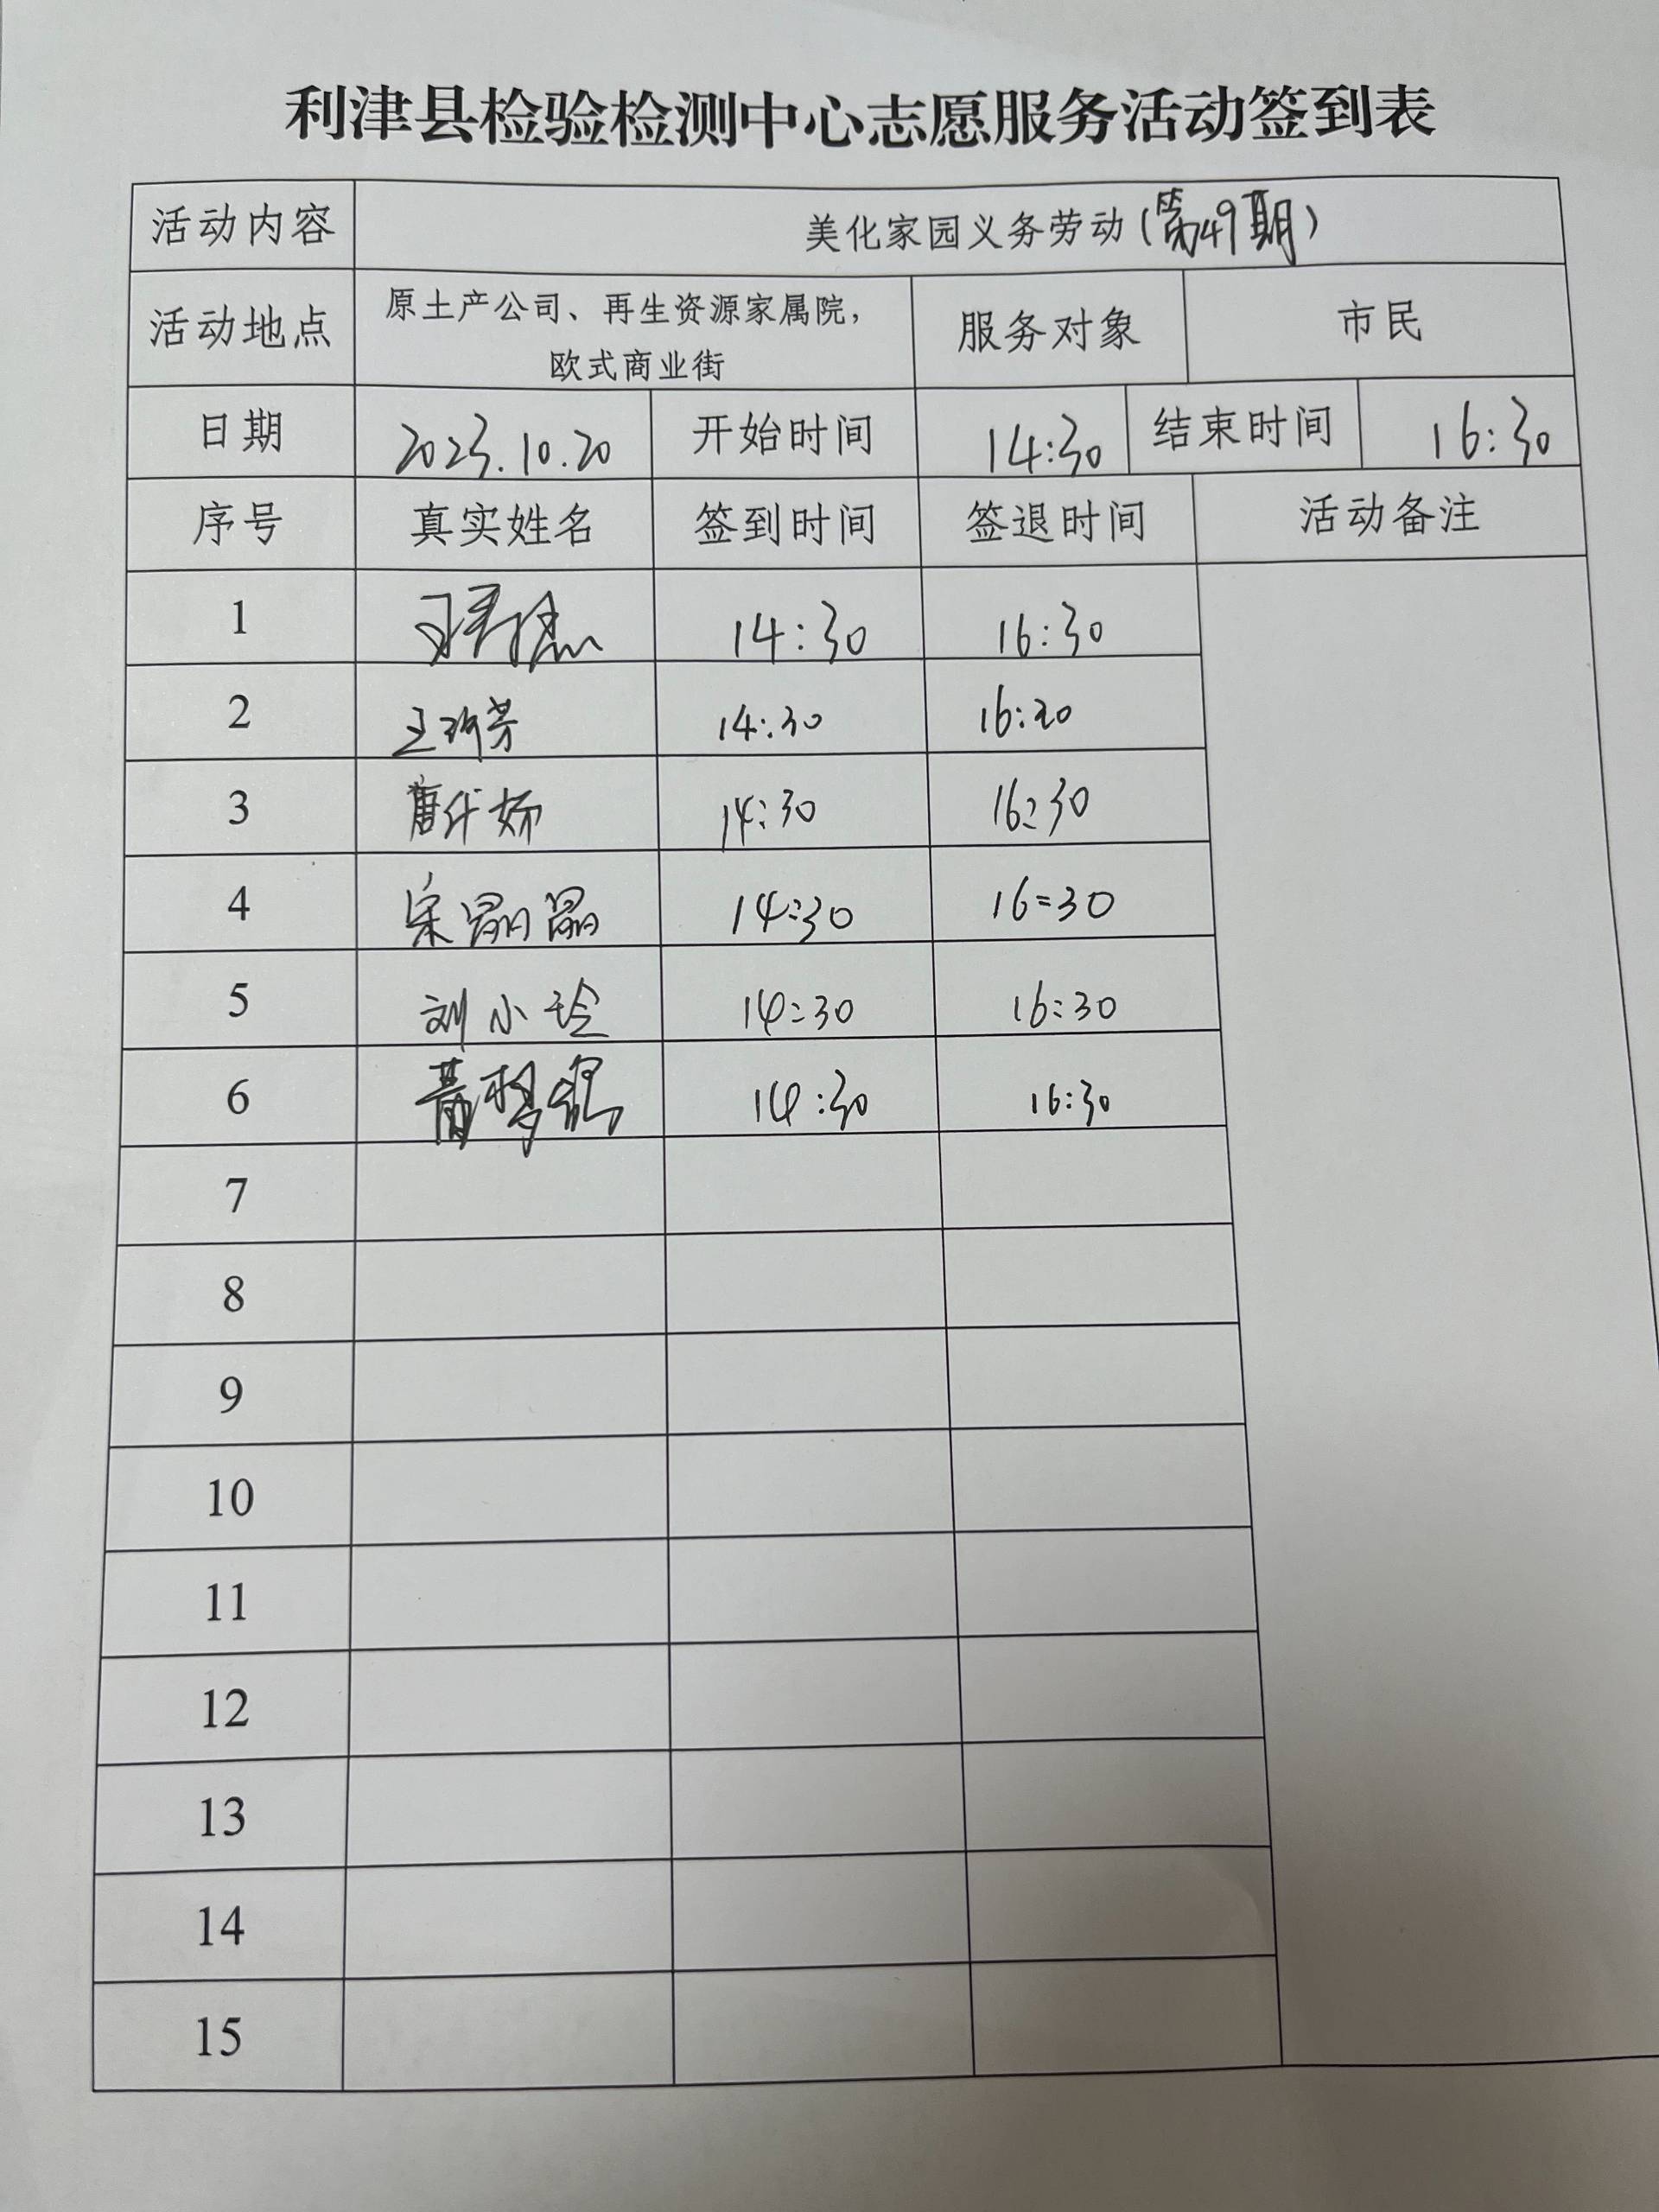 利津县检验检测中心志愿服务活动签到表
活动内容 美化家园义务劳动(第49期)
活动地点 原土产公司、再生资源家属院，
欧式商业街 服务对象 市民
日期 2023.10.20 开始时间 14:30 结束时间 16:30
序号 真实姓名 签到时间 签退时间 活动备注
1 14:30 16:30
2 14:30 16:30
3 14:30 16:30
4 宋晶晶 14:30 16:30
5 刘小玲 14:30 16:30
6 14:30 16:30
7
8
9
10
11
12
13
14
15